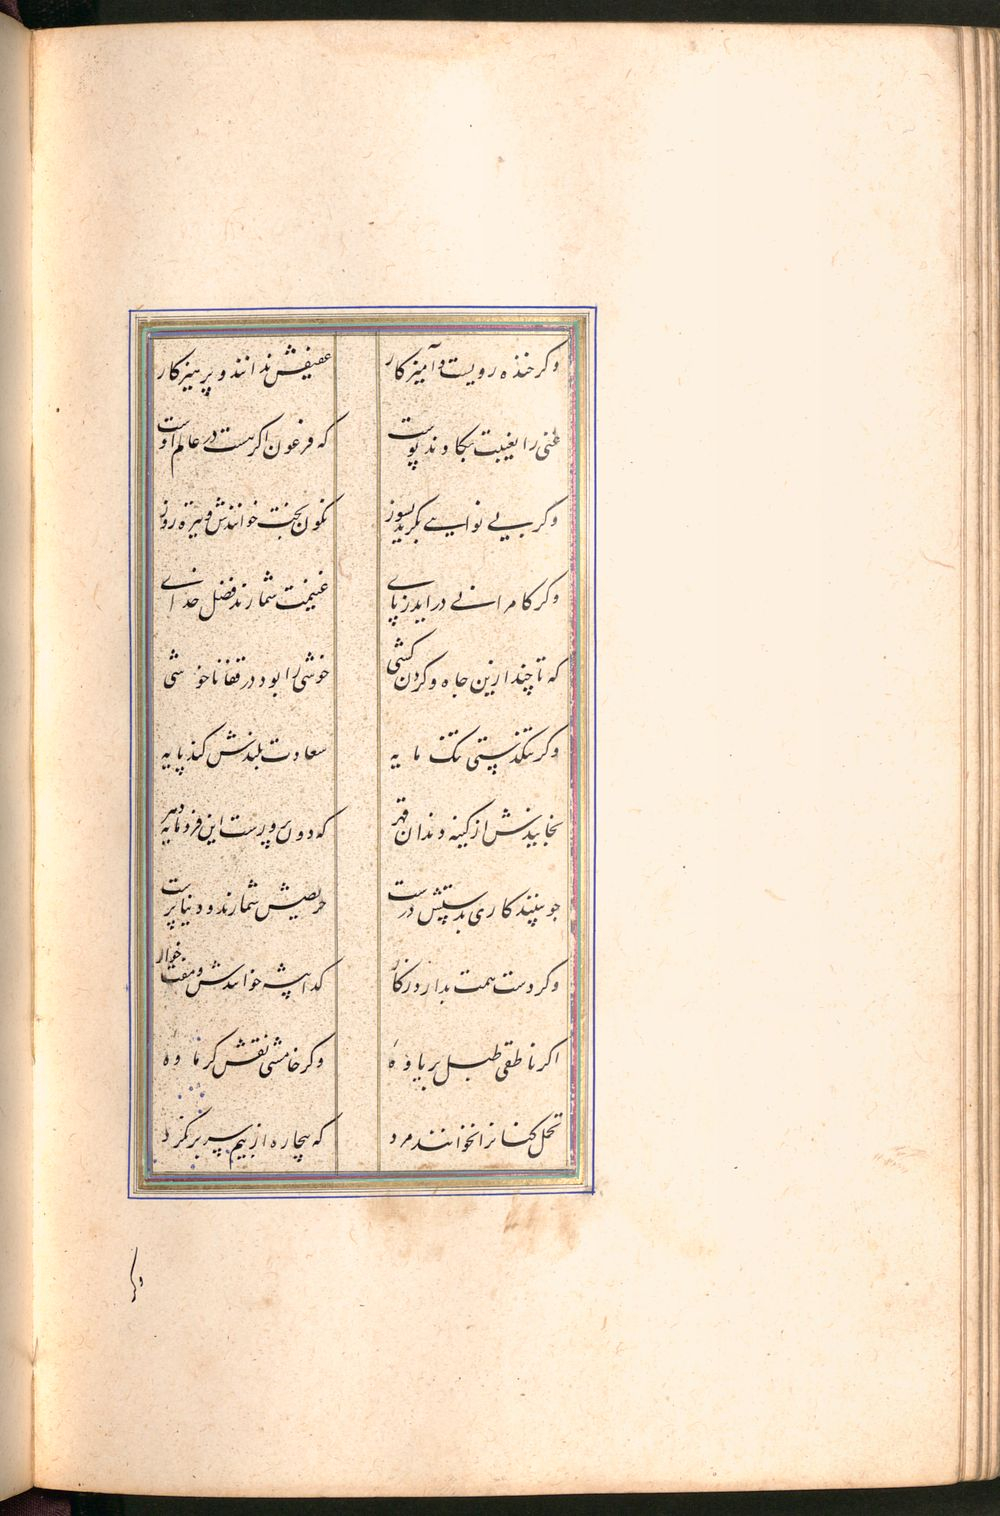 وکر خنده رویست و آمیزکار عفیفش ندانند و پرهیزکار
غنی را بغیبت بکاوند پوست که فرعون اکر هست در عالم اوست
وگر بی نوایی بگرید بسوز نکون بخت خوانندش و تیره روز
وکر کامرانی درآید ز پای غنیمت شمارند فضل خدای
که تا چند ازین جاه و کردن کشی خوشی را بود در قفا ناخوشی
وکر تنکدستی تنک مایه سعادت بلندش کند پایه
بخایندش از کینه دندان قهر که دون پرورست این فرومایه دهر
چو بینند کاری بدستش درست حریصش شمارند و دنیا پرست
وکر دست همت بدارد ز کار کدا پیشه خوانندش و مفت خوار
اکر ناطقی طبل پر یاوه وکر خامشی نقش کرماوه
تحمل کنانرا نخوانند مرد که بیچاره از بیم سر برنکرد
وکر